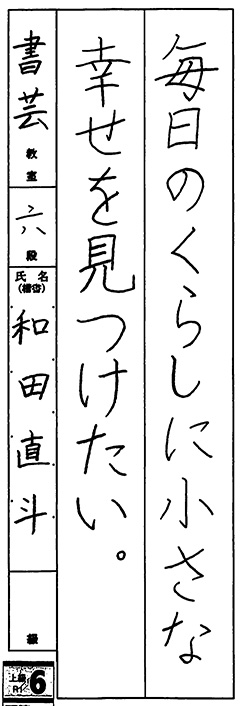 毎日のくらしに小さな
幸せを見つけたい。
書芸教室
六段
氏名
(楷書)
和田直斗
級
上級
R1
6